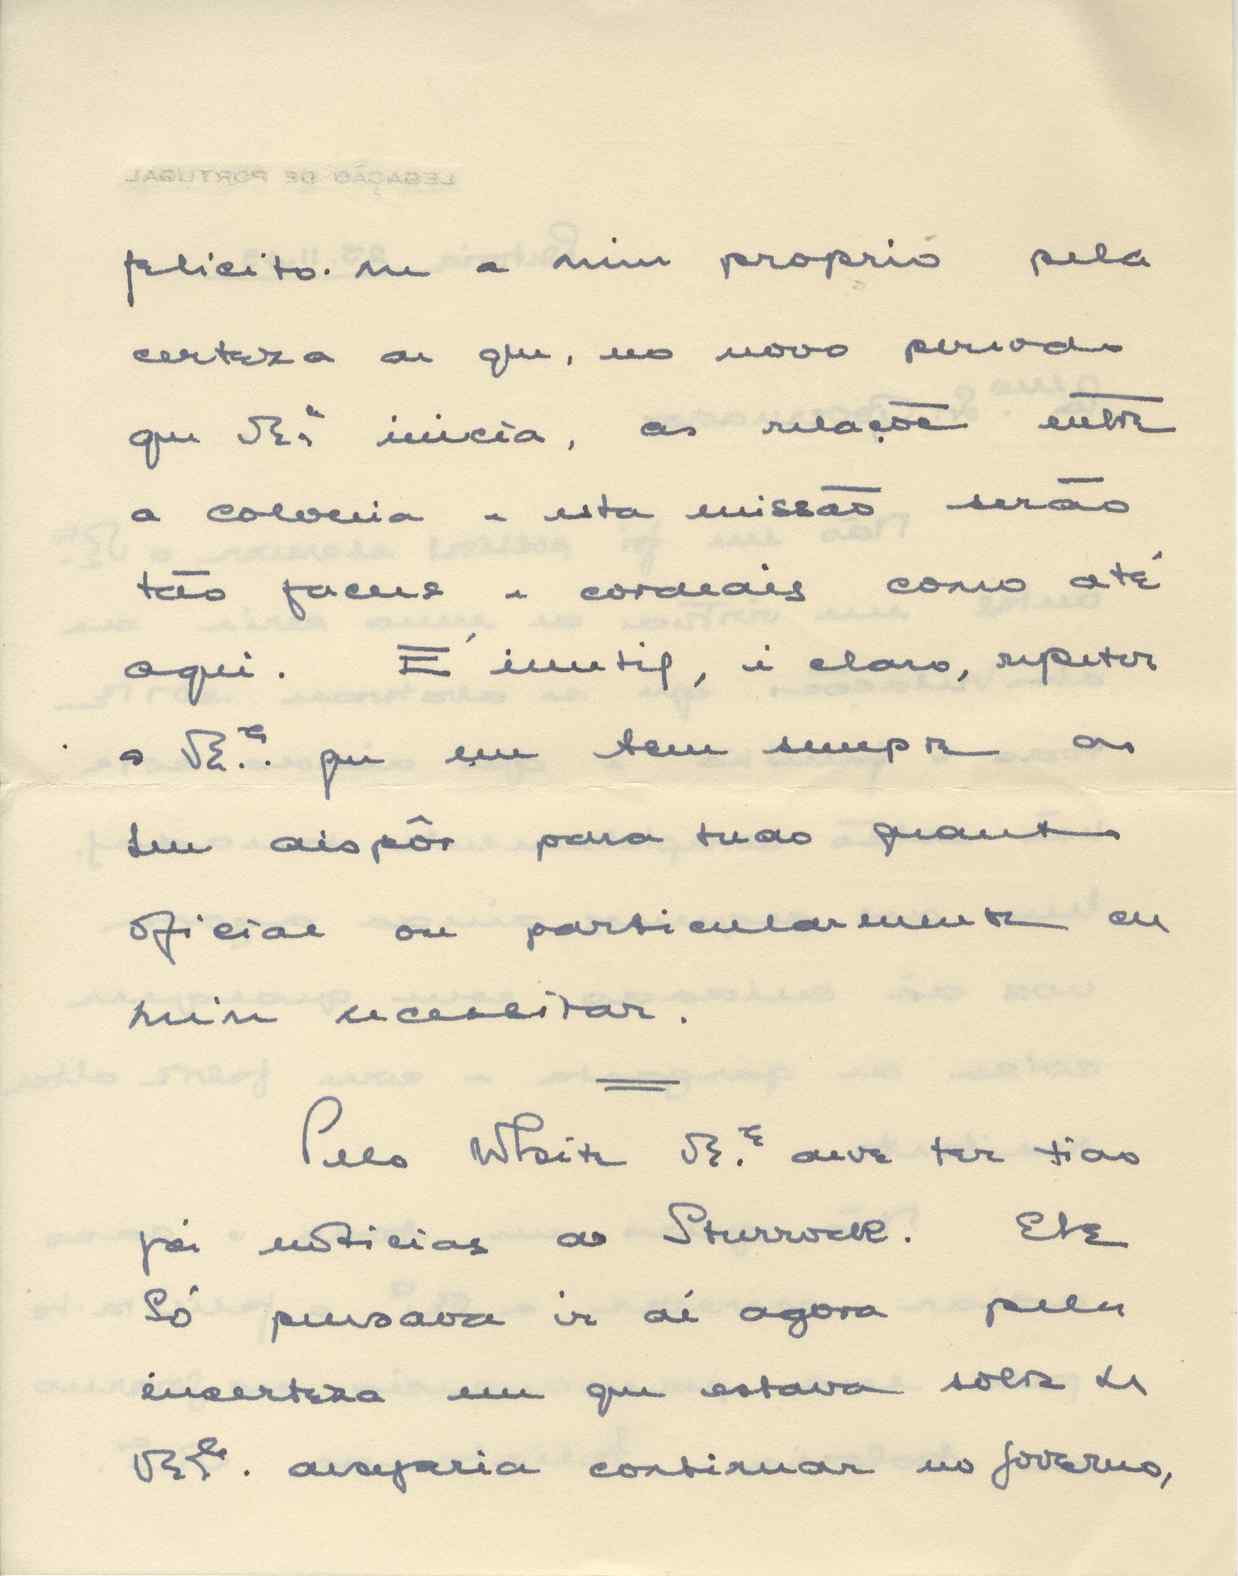 felicito-me a mim proprio pela
certeza de que, no novo periodo
que V.Ex.ª inicia, as relações entre
a colonia e esta missão serão
tão faceis e cordeais como até
aqui. É inutil, é claro, repetir
a V.Ex.ª que em tem sempre ao
seu dispôr para tudo quanto
oficial ou particularmente de
mim necessitar.
Pelo White V.Ex.ª deve ter tido
já noticias do Sturrock. Ele
só pensava ir aí agora pela
incerteza em que estava sobre se
V.Ex.ª desejaria continuar no governo,